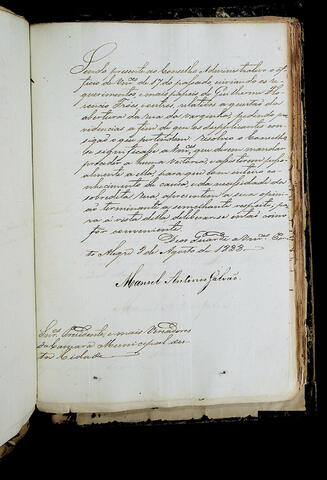 Sendo presente ao Conselho Administrativo o of-
ficio de Vm.ces de 17 do passado, enviando os re-
querimentos, e mais papeis de Guilherme Flo-
rencio Fróes, e outros, relativos a questão da
abertura da rua da Varginha, pedindo pro-
videncias a fim de que os supplicantes con-
sigão o que pertendem: Resolveo o Conselho
se significasse a Vm.ces que devem mandar
proceder a huma vestoria, e assistirem pesso-
almente a ella, para que com inteiro co-
nhecimento de causa, e da necessidade da
sobredita rua apresentem a sua opinião
ao terminante a semelhante respeito, pa-
ra á vista della deliberar-se então como
fôr conveniente.
Deos Guarde a Vm.ces Por-
to Alegre 9 de Agosto de 1833.
Manoel Antonio Galvão
Snr.es Presidente, e mais Vereadores
da Camara Municipal des-
ta Cidade